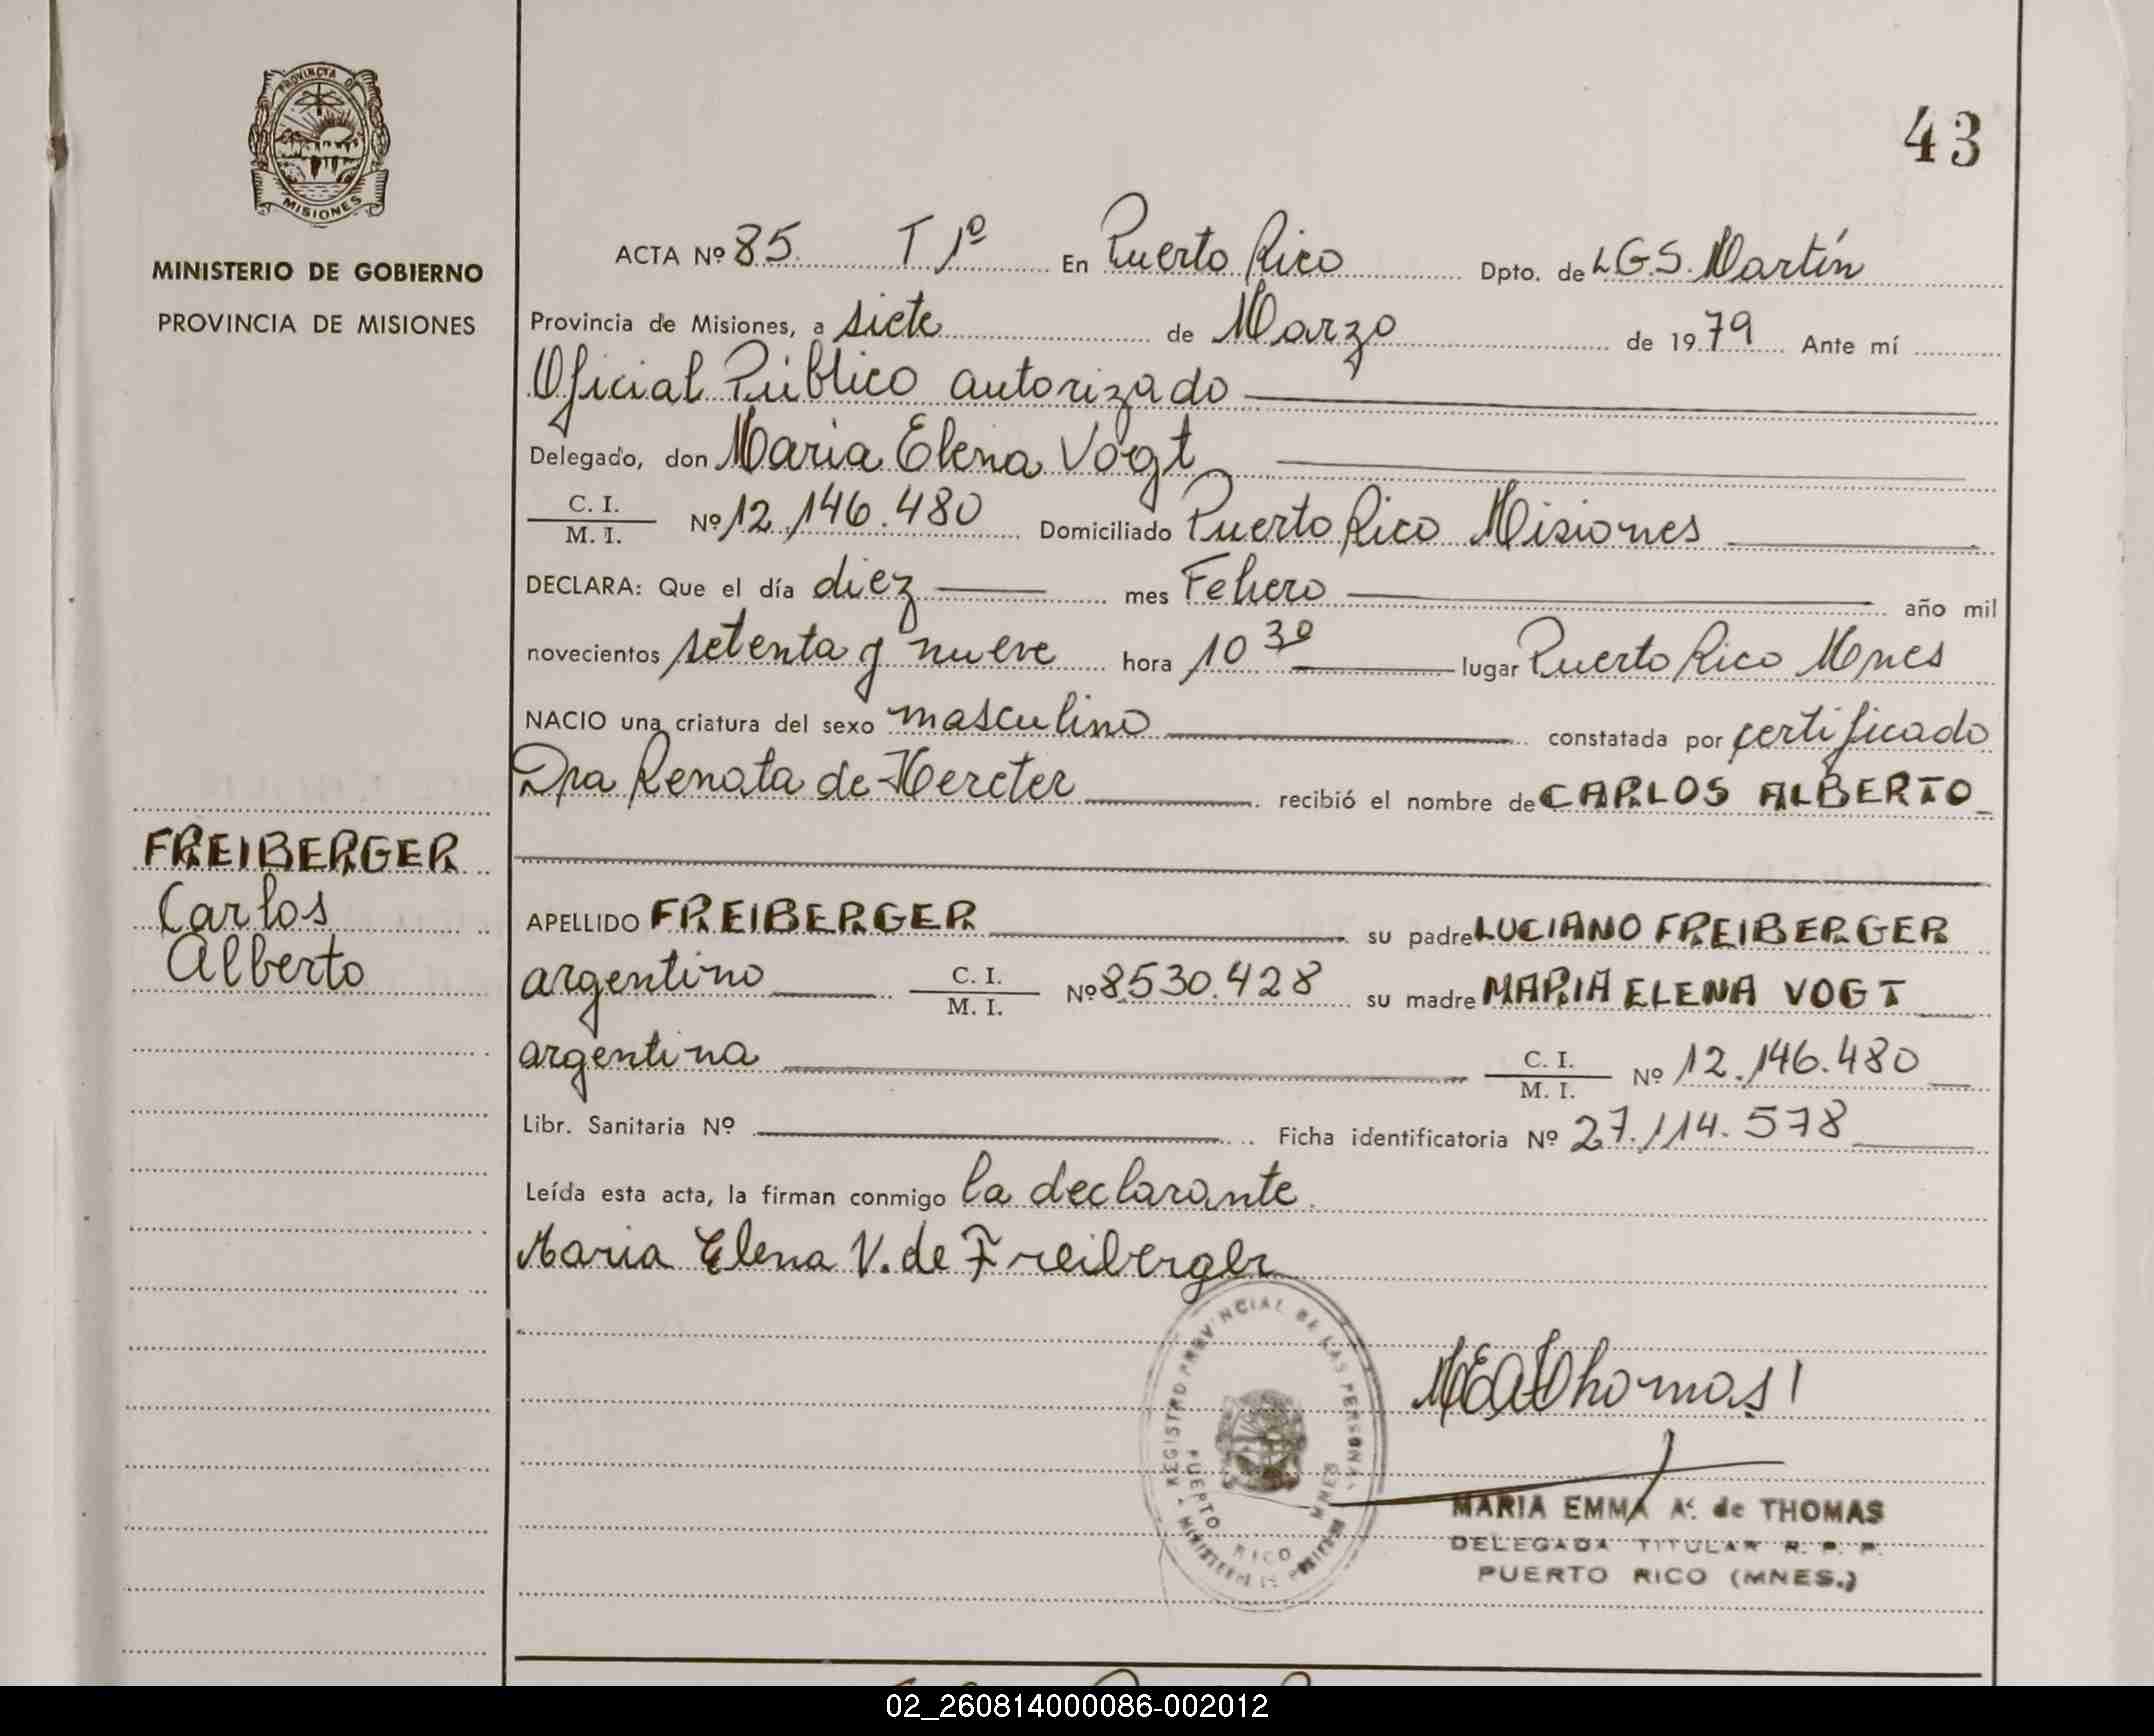 PROVINCIA DE
MISIONES
MINISTERIO DE GOBIERNO
PROVINCIA DE MISIONES
43
ACTA Nº 85 T 1º En Puerto Rico Dpto. de L.G.S. Martín
Provincia de Misiones, a siete de Marzo de 1979 Ante mí
Oficial Público autorizado
Delegado, don Maria Elena Vogt
C. I.
M. I. Nº 12.146.480 Domiciliado Puerto Rico Misiones
DECLARA: Que el día diez mes Febrero año mil
novecientos setenta y nueve hora 10 30 lugar Puerto Rico Mnes
NACIO una criatura del sexo masculino constatada por certificado
Dra Renata de Hercter recibió el nombre de CARLOS ALBERTO
FREIBERGER
Carlos
Alberto
APELLIDO FREIBERGER su padre LUCIANO FREIBERGER
argentino C. I.
M. I. Nº 8530.428 su madre MARIA ELENA VOGT
argentina C. I.
M. I. Nº 12.146.480
Libr. Sanitaria Nº Ficha identificatoria Nº 27.114.578
Leída esta acta, la firman conmigo la declarante
Maria Elena V. de Freiberger
REGISTRO PROVINCIAL DE LAS PERSONAS
PUERTO RICO MNES
MEAThomas
MARIA EMMA A. de THOMAS
DELEGADA TITULAR R. P. P.
PUERTO RICO (MNES.)
02_260814000086-002012